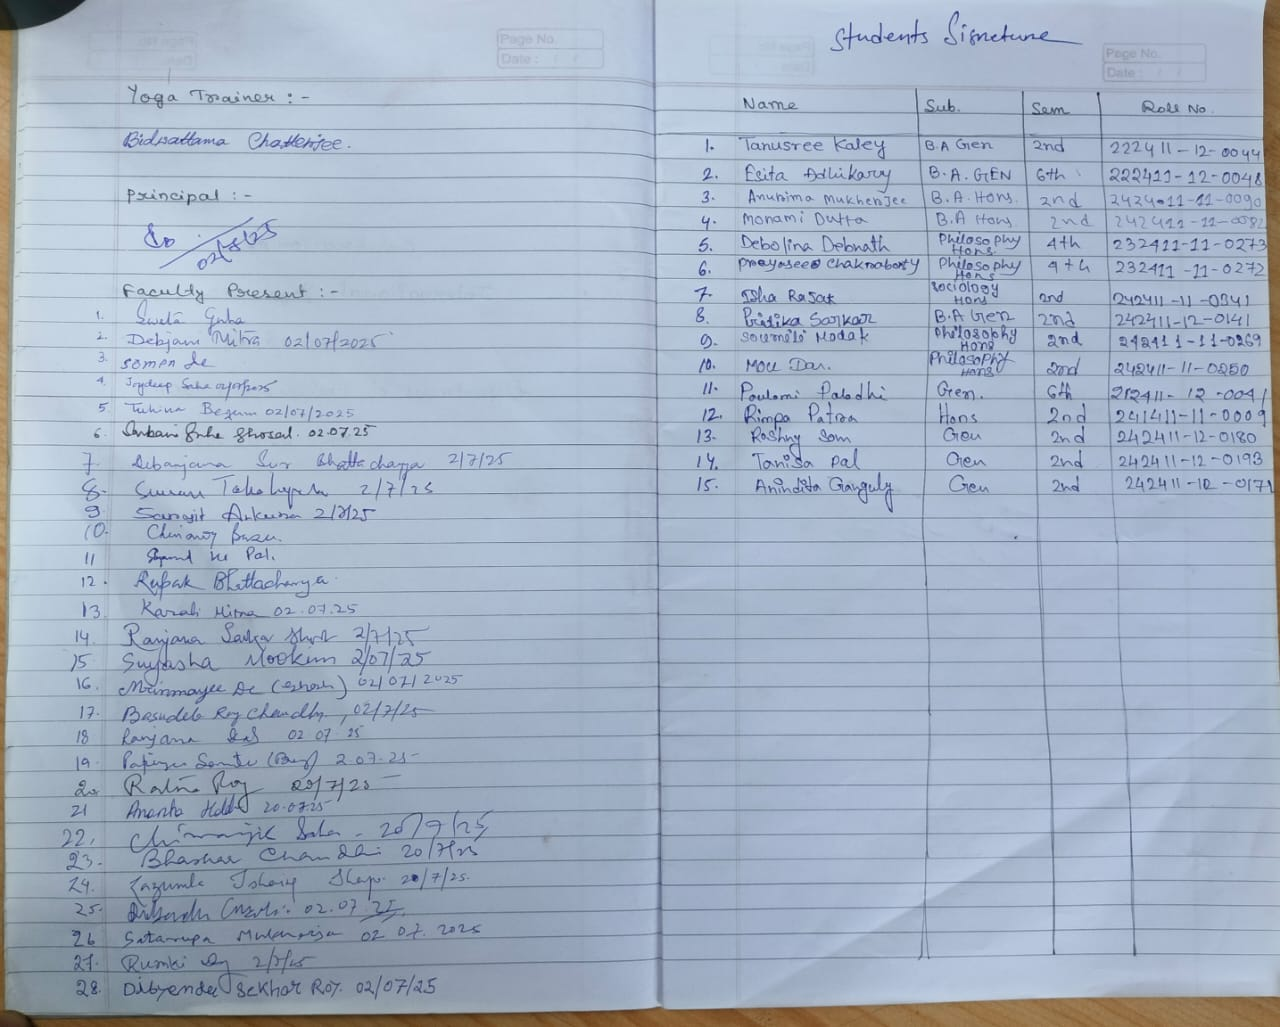 Page No.
Date : / /
Yoga Trainer :-
Bidisattama Chatterjee.
Principal :-
02/7/25
Faculty Present :-
1. Sweta Guha
2. Debjani Mitra 02/07/2025
3. Somen De
4. Joydeep Saha
5. Tuhina Begum 02/07/2025
6. Sarbani Guha Ghosal. 02.07.25
7. Debanjana Sur Bhattacharya 2/7/25
8. 2/7/25
9. Sarojit 2/7/25
10. Chinmoy Basu.
11 Pal.
12. Rupak Bhattacharya.
13. Karabi Mitra 02.07.25
14. Ranjana Saha Ghosh 2/7/25
15 Suyasha Mookim 2/07/25
16. Mrinmayee De (Ghosh) 02/07/2025
17. Basudeb Roy Chowdhury, 02/7/25
18 Ranjana Das 02.07.25
19. 2.07.25
20. Ratna Roy 20/7/25
21 Ananta 20.07.25
22. Chiranjit Saha - 20/7/25
23. Bhaskar 20/7/25
24. 20/7/25.
25. 02.07.25
26 Satarupa Mukherjee 02.07.2025
27. Rumki Dey 2/7/25
28. Dibyendu Sekhar Roy. 02/07/25
Students Signeture
Page No.
Date : / /
Name Sub. Sem Roll No.
1. Tanusree Kaley B.A Gen 2nd 222411-12-0044
2. Esita Adhikary B.A. GEN 6th 222411-12-0048
3. Anunima Mukherjee B.A. Hons. 2nd 242411-11-0090
4. Monami Dutta B.A Hons 2nd 242411-11-0082
5. Debolina Debnath Philosophy Hons. 4th 232411-11-0273
6. Prayosee Chakraborty Philosophy Hons 4th 232411-11-0272
7. Isha Rajak Sociology Hons 2nd 242411-11-0341
8. Pridika Sarkar B.A Gen 2nd 242411-12-0141
9. Soumili Modak Philosophy Hons 2nd 242411-11-0269
10. Mou Das. Philosophy Hons 2nd 242411-11-0250
11. Poulomi Palodhi Gen. 6th 212411-12-0041
12. Rimpa Patra Hons 2nd 241411-11-0009
13. Roshny Som Gen 2nd 242411-12-0180
14. Tanisa Pal Gen 2nd 242411-12-0193
15. Anindita Ganguly Gen 2nd 242411-12-0171